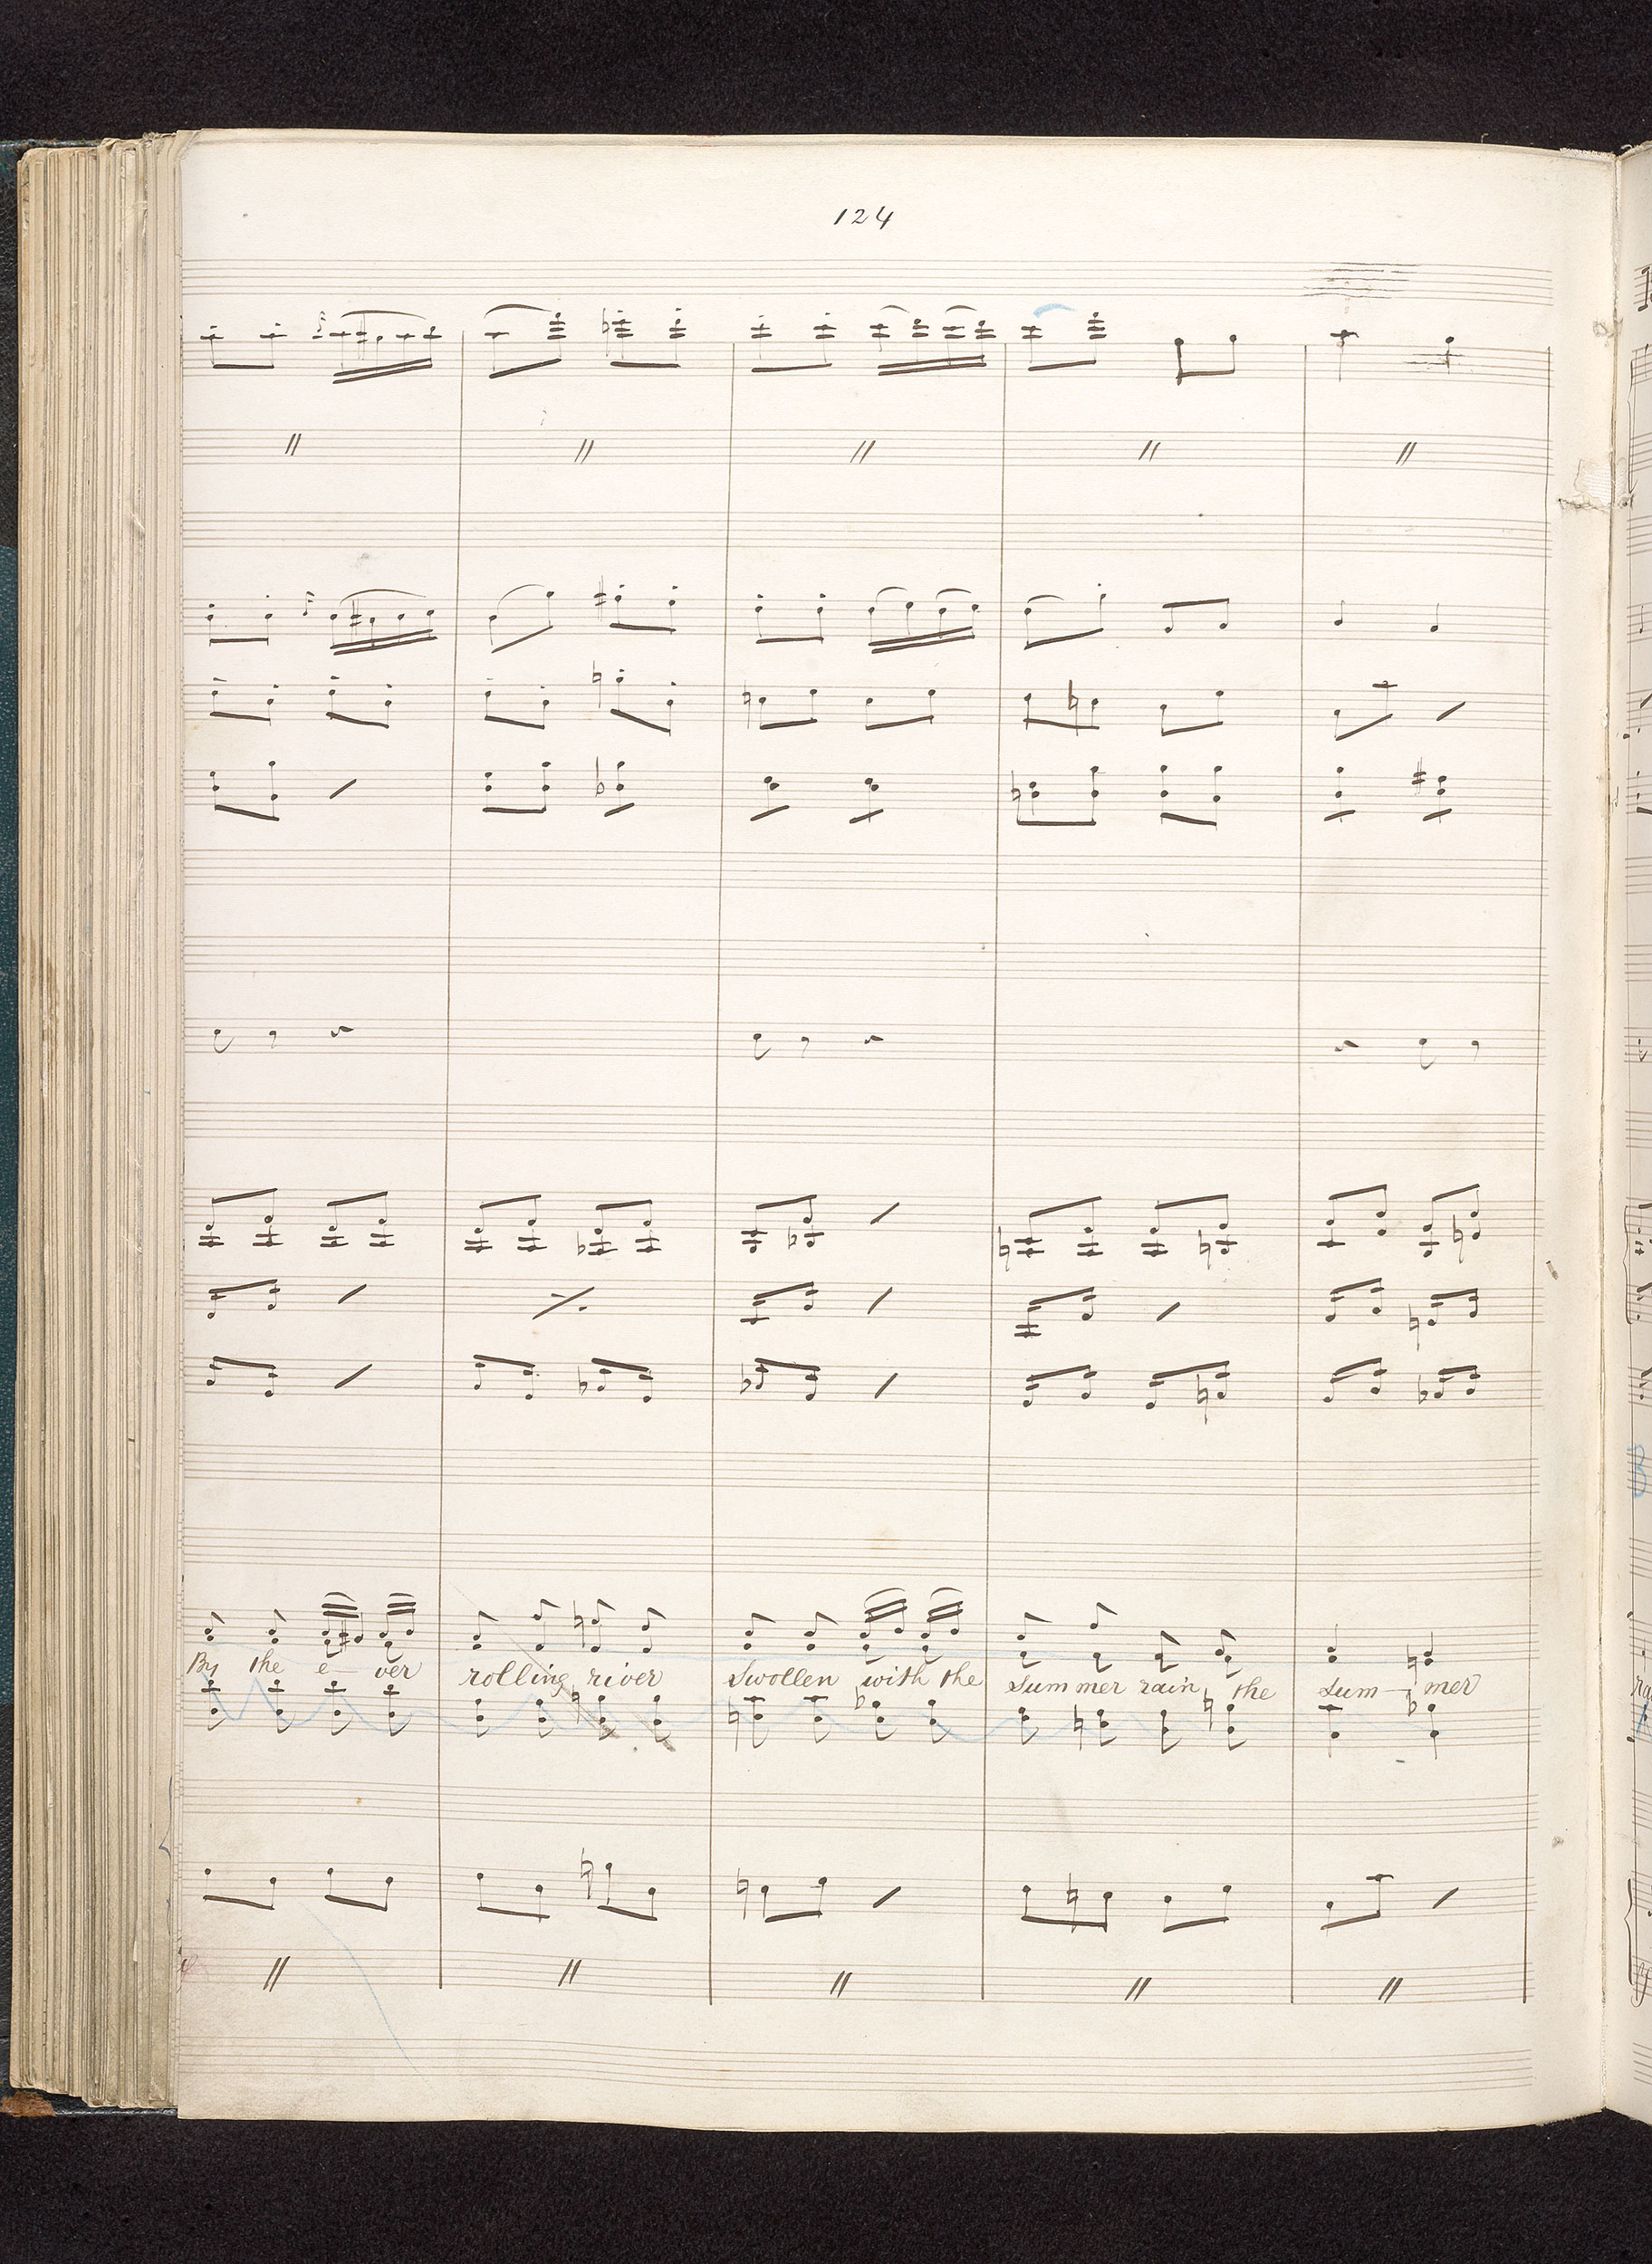 124
By the e- ver rolling river Swollen with the Summer rain, the Sum- mer